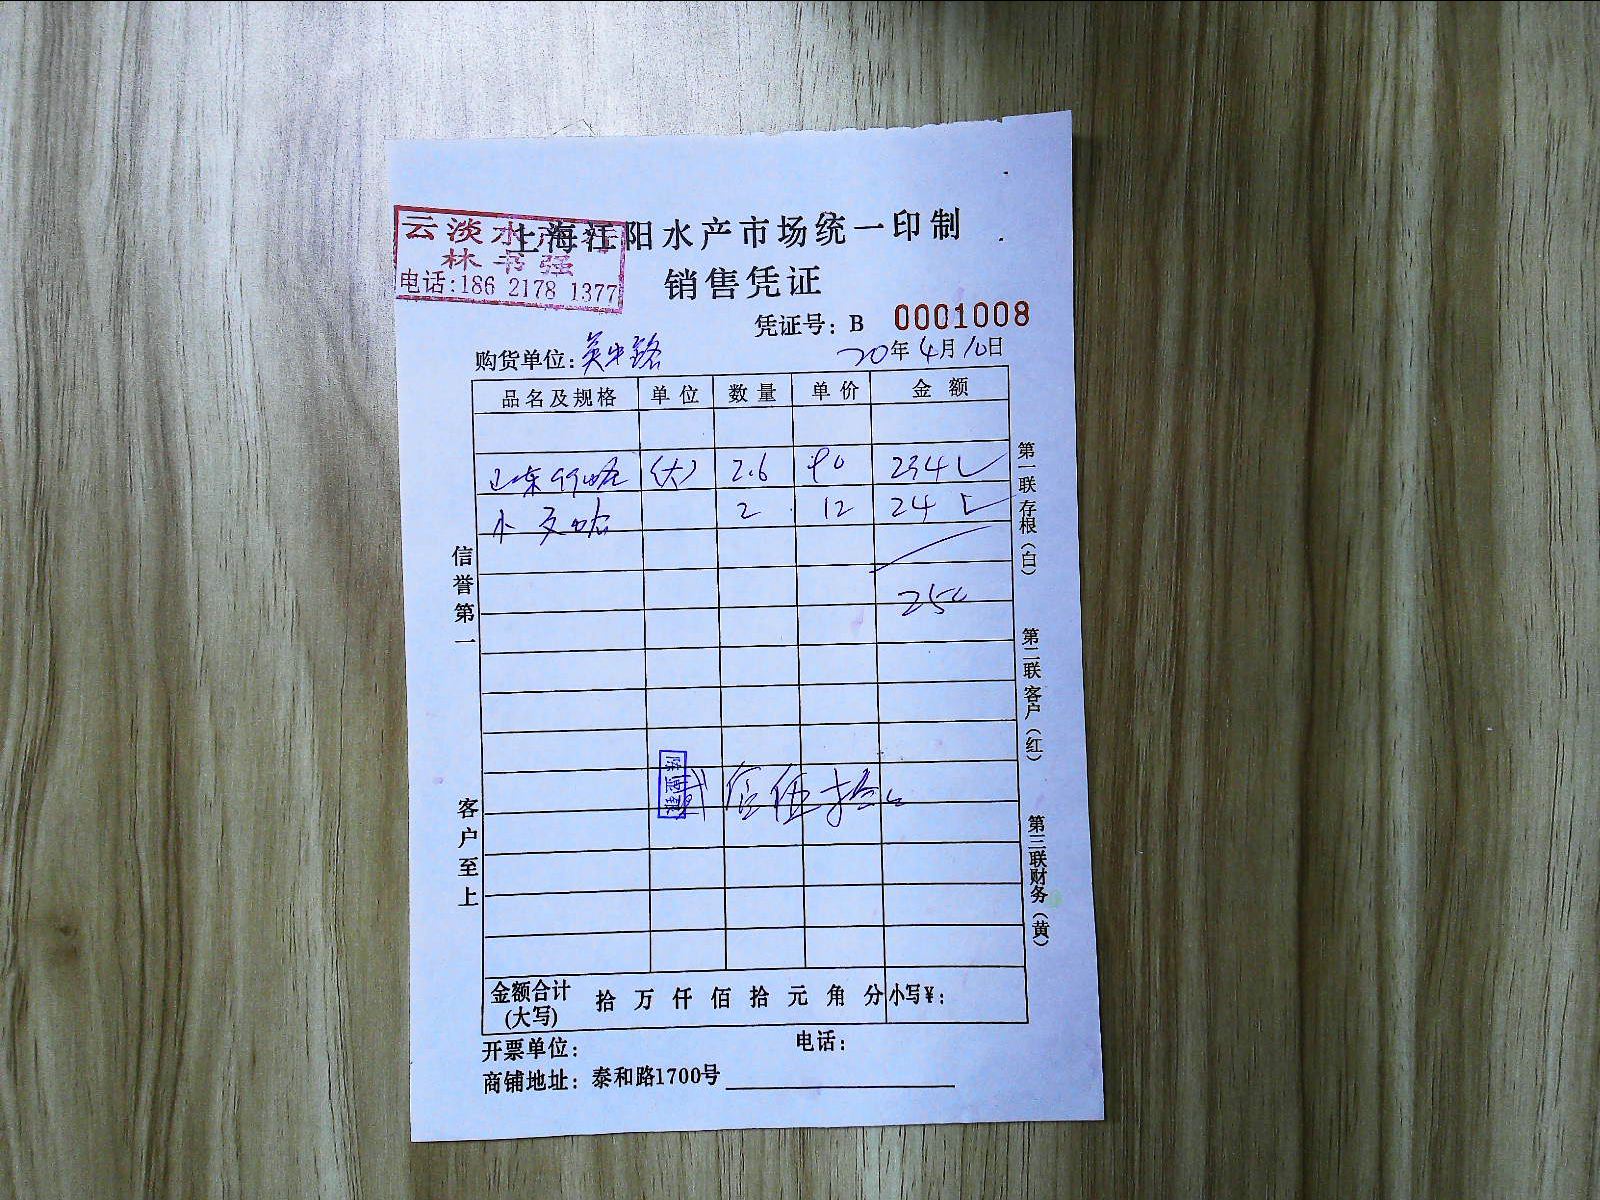 云淡水产行
林书强
电话:186 2178 1377
上海江阳水产市场统一印制
销售凭证
凭证号: B 0001008
购货单位: 吴中路 20年4月10日
品名及规格 单位 数量 单价 金额
山东 (大) 2.6 90 234
小 2 12 24
250
贰佰伍拾
金额合计(大写) 拾 万 仟 佰 拾 元 角 分 小写¥:
开票单位: 电话:
商铺地址: 泰和路1700号
信誉第一
客户至上
第一联存根(白)
第二联客户(红)
第三联财务(黄)